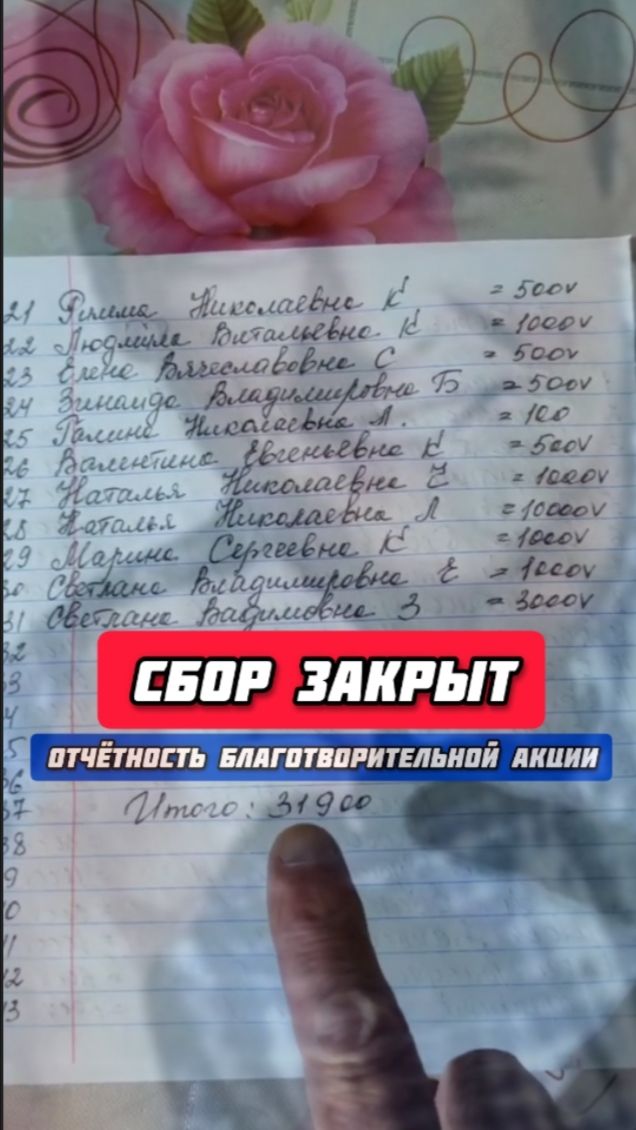 21 Римма Николаевна К = 500v
22 Людмила Витальевна К = 1000v
23 Елена Вячеславовна С = 500v
24 Зинаида Владимировна Б = 500v
25 Галина Николаевна Л. = 100
26 Валентина Евгеньевна К = 500v
27 Наталья Николаевна Ч = 1000v
28 Наталья Николаевна Л = 10000v
29 Марина Сергеевна К = 1000v
30 Светлана Владимировна Е = 1000v
31 Светлана Вадимовна З = 3000v
32
СБОР ЗАКРЫТ
33
34
35
ОТЧЁТНОСТЬ БЛАГОТВОРИТЕЛЬНОЙ АКЦИИ
36
37 Итого: 31900
38
9
0
1
2
3